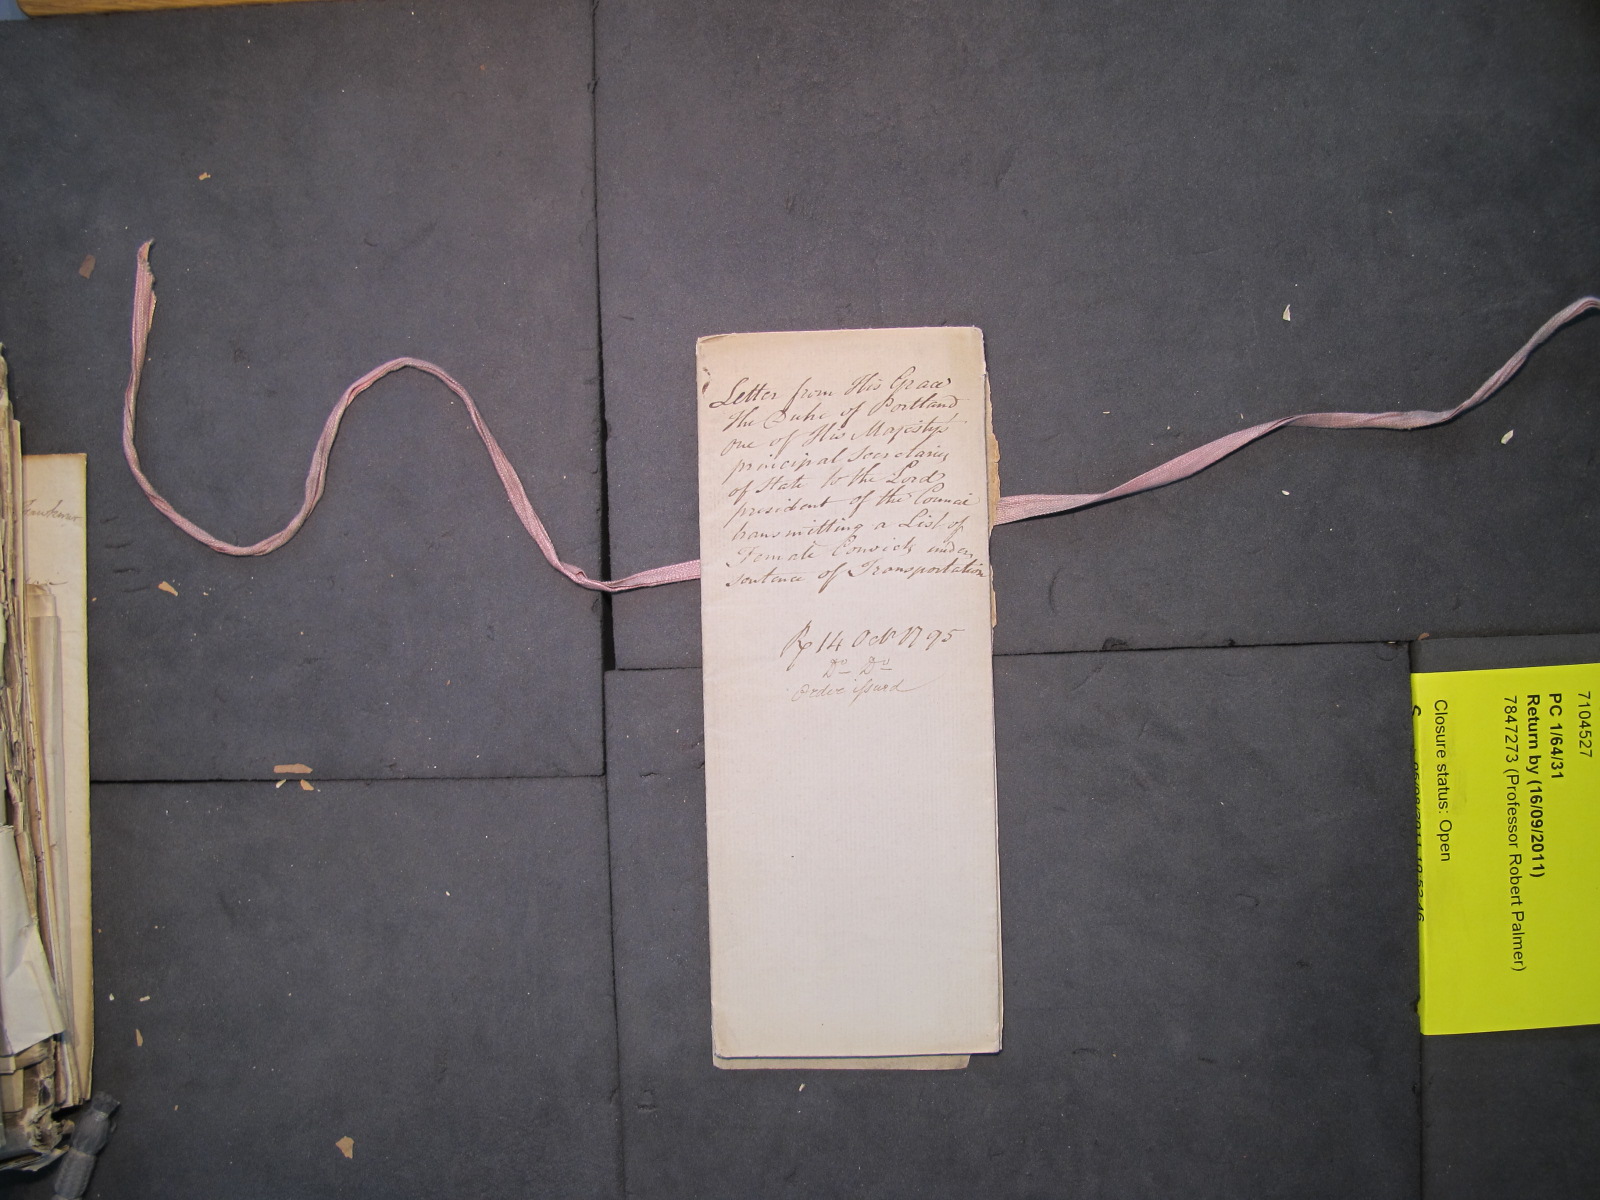 Letter from His Grace
the Duke of Portland
one of His Majesty's
principal Secretaries
of State to the Lord
president of the Council
transmitting a List of
Female Convicts under
sentence of Transportation
14 Octr 1795
Do Do
Order issued
7104527
PC 1/64/31
Return by (16/09/2011)
7847273 (Professor Robert Palmer)
Closure status: Open